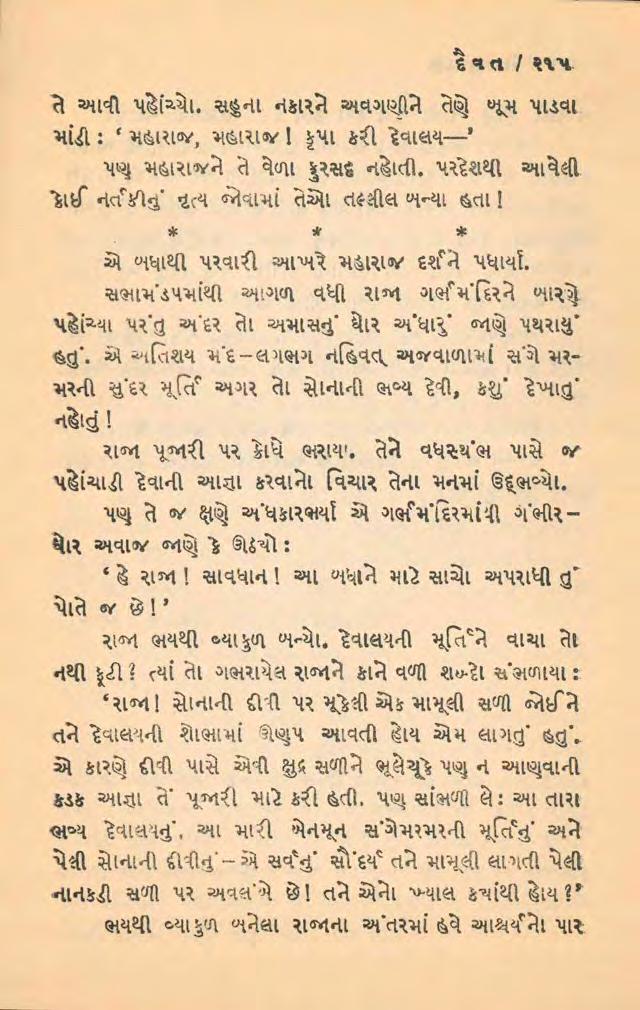 દૈવત / ૨૧૫
તે આવી પહોંચ્યો. સહુના નકારને અવગણીને તેણે બૂમ પાડવા
માંડી : ‘ મહારાજ, મહારાજ ! કૃપા કરી દેવાલય—’
પણ મહારાજને તે વેળા ફુરસદ નહોતી. પરદેશથી આવેલી
કોઈ નર્તકીનું નૃત્ય જોવામાં તેઓ તલ્લીન બન્યા હતા !
* * *
એ બધાથી પરવારી આખરે મહારાજ દર્શને પધાર્યા.
સભામંડપમાંથી આગળ વધી રાજા ગર્ભમંદિરને બારણે
પહોંચ્યા પરંતુ અંદર તો અમાસનું ઘોર અંધારું જાણે પથરાયું
હતું. એ અતિશય મંદ–લગભગ નહિવત્ અજવાળામાં સંગેમર-
મરની સુંદર મૂર્તિ અગર તો સોનાની ભવ્ય દેવી, કશું દેખાતું
નહોતું !
રાજા પૂજારી પર ક્રોધે ભરાયા. તેને વધસ્થંભ પાસે જ
પહોંચાડી દેવાની આજ્ઞા કરવાનો વિચાર તેના મનમાં ઉદ્ભવ્યો.
પણ તે જ ક્ષણે અંધકારભર્યા એ ગર્ભમંદિરમાંથી ગંભીર–
ઘોર અવાજ જાણે કે ઊઠ્યો :
‘ હે રાજા ! સાવધાન ! આ બધાને માટે સાચો અપરાધી તું
પોતે જ છે ! ’
રાજા ભયથી વ્યાકુળ બન્યો. દેવાલયની મૂર્તિને વાચા તો
નથી ફૂટી ? ત્યાં તો ગભરાયેલ રાજાને કાને વળી શબ્દો સંભળાયા :
‘રાજા ! સોનાની દીવી પર મૂકેલી એક મામૂલી સળી જોઈને
તને દેવાલયની શોભામાં ઊણપ આવતી હોય એમ લાગતું હતું.
એ કારણે દીવી પાસે એવી ક્ષુદ્ર સળીને ભૂલેચૂકે પણ ન આણવાની
કડક આજ્ઞા તેં પૂજારી માટે કરી હતી. પણ સાંભળી લે : આ તારા
ભવ્ય દેવાલયનું, આ મારી બેનમૂન સંગેમરમરની મૂર્તિનું અને
પેલી સોનાની દીવીનું – એ સર્વનું સૌંદર્ય તને મામૂલી લાગતી પેલી
નાનકડી સળી પર અવલંબે છે ! તને એનો ખ્યાલ ક્યાંથી હોય ?’
ભયથી વ્યાકુળ બનેલા રાજાના અંતરમાં હવે આશ્ચર્યનો પાર